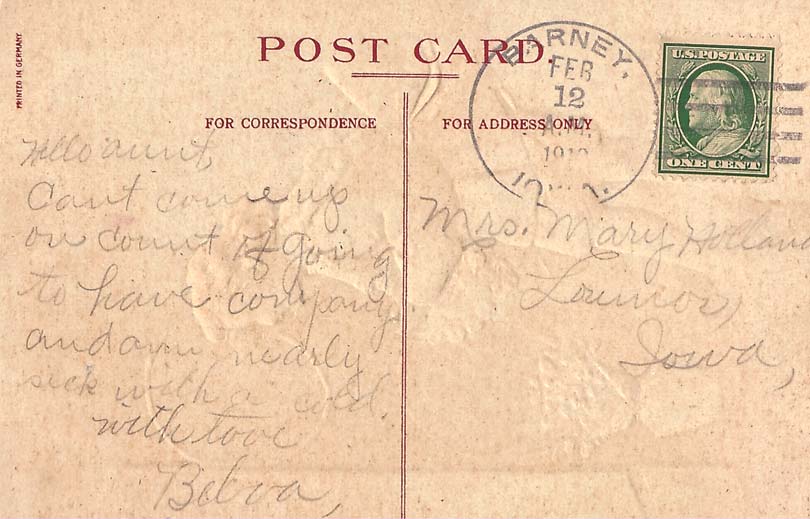 PRINTED IN GERMANY
POST CARD.
BARNEY,
FEB
12
A.M.
U.S. POSTAGE
ONE CENT
FOR CORRESPONDENCE
FOR ADDRESS ONLY
Hello aunt,
Cant come up
on count of going
to have company
and am nearly
sick with a cold.
with love
Belva,
Mrs. Mary Holland
Lorimor,
Iowa,